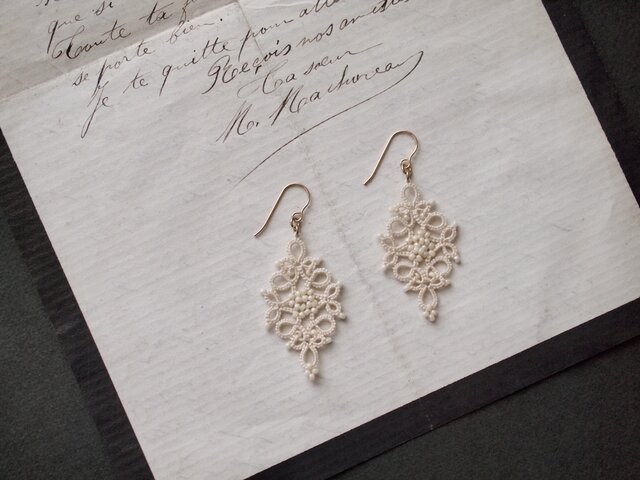 que si
Toute ta
se porte bien.
Je te quitte pour
Reçois nos
Ta sœur
M. Machoreau